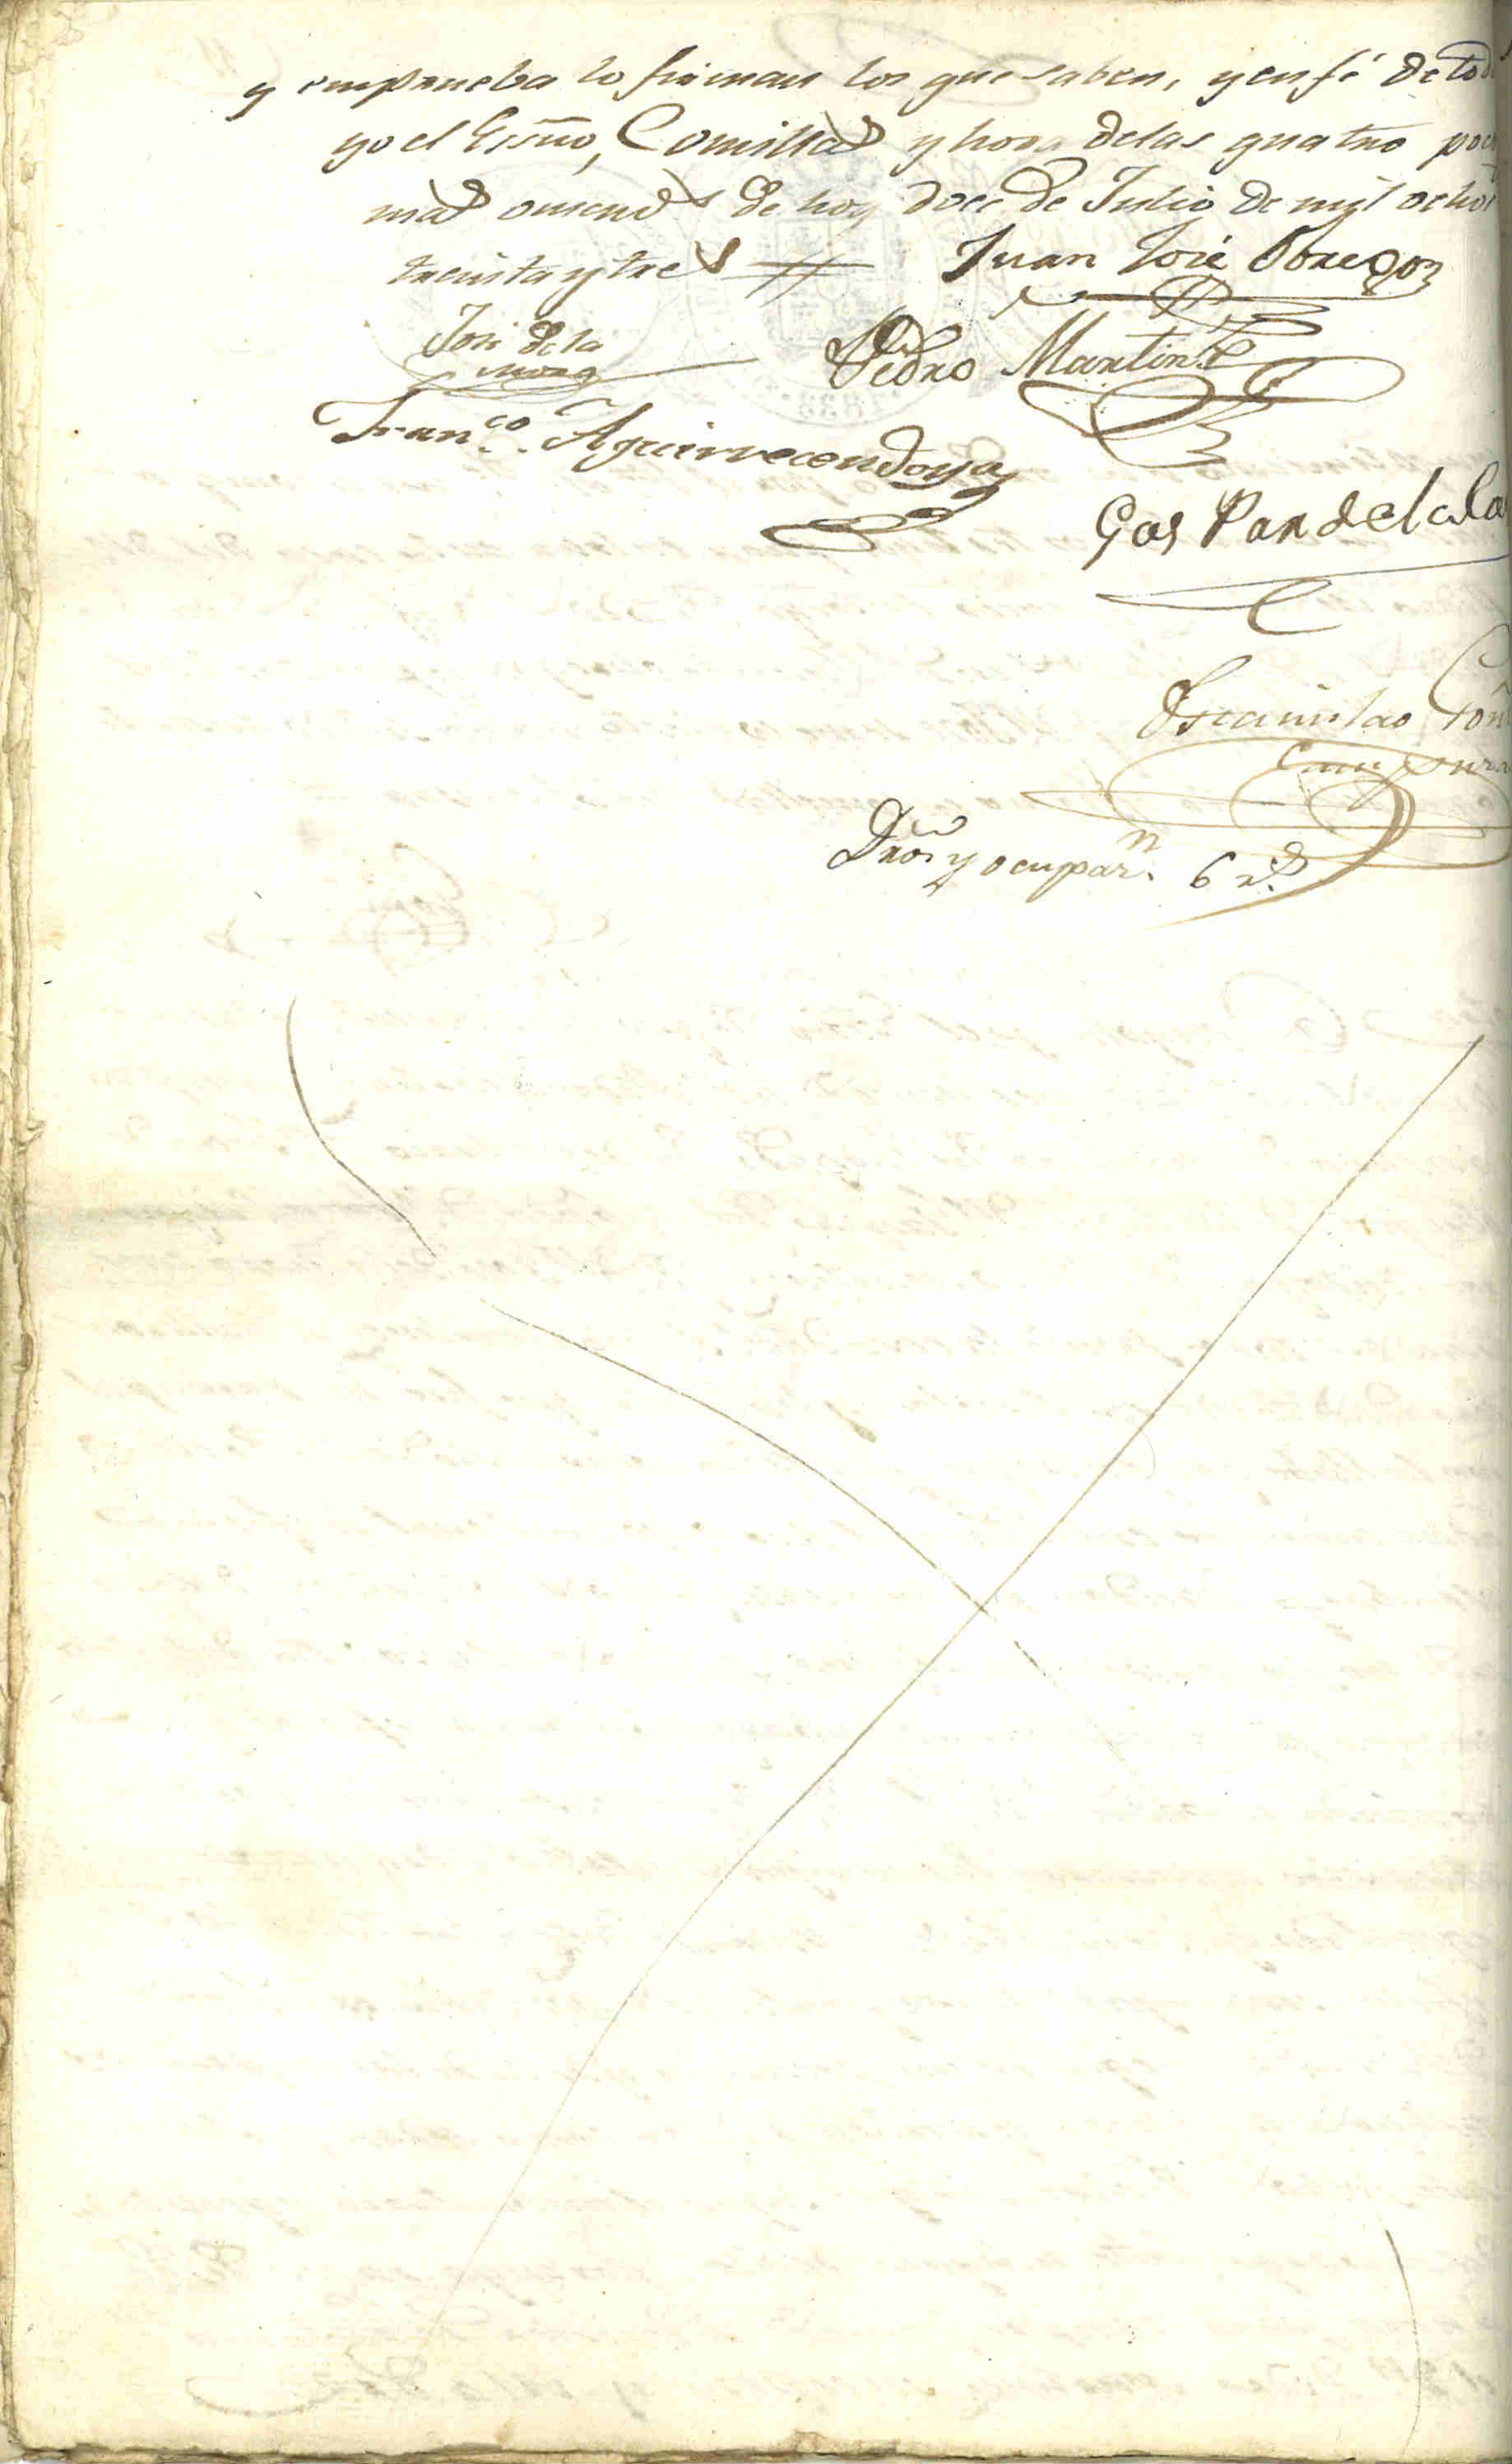 y en prueba lo firman los que saben, y en fé de todo
yo el Essno, Comillas y hora de las quatro poco
mas o menos de hoy doce de Julio de mil ochos
treinta y tres
Juan José Obregon
José de la
Mora
Pedro Martinz
Franco. Aguirrecendoya
GasPar de la
Estanislao
Dros. y ocupan. 6 rs.
1833